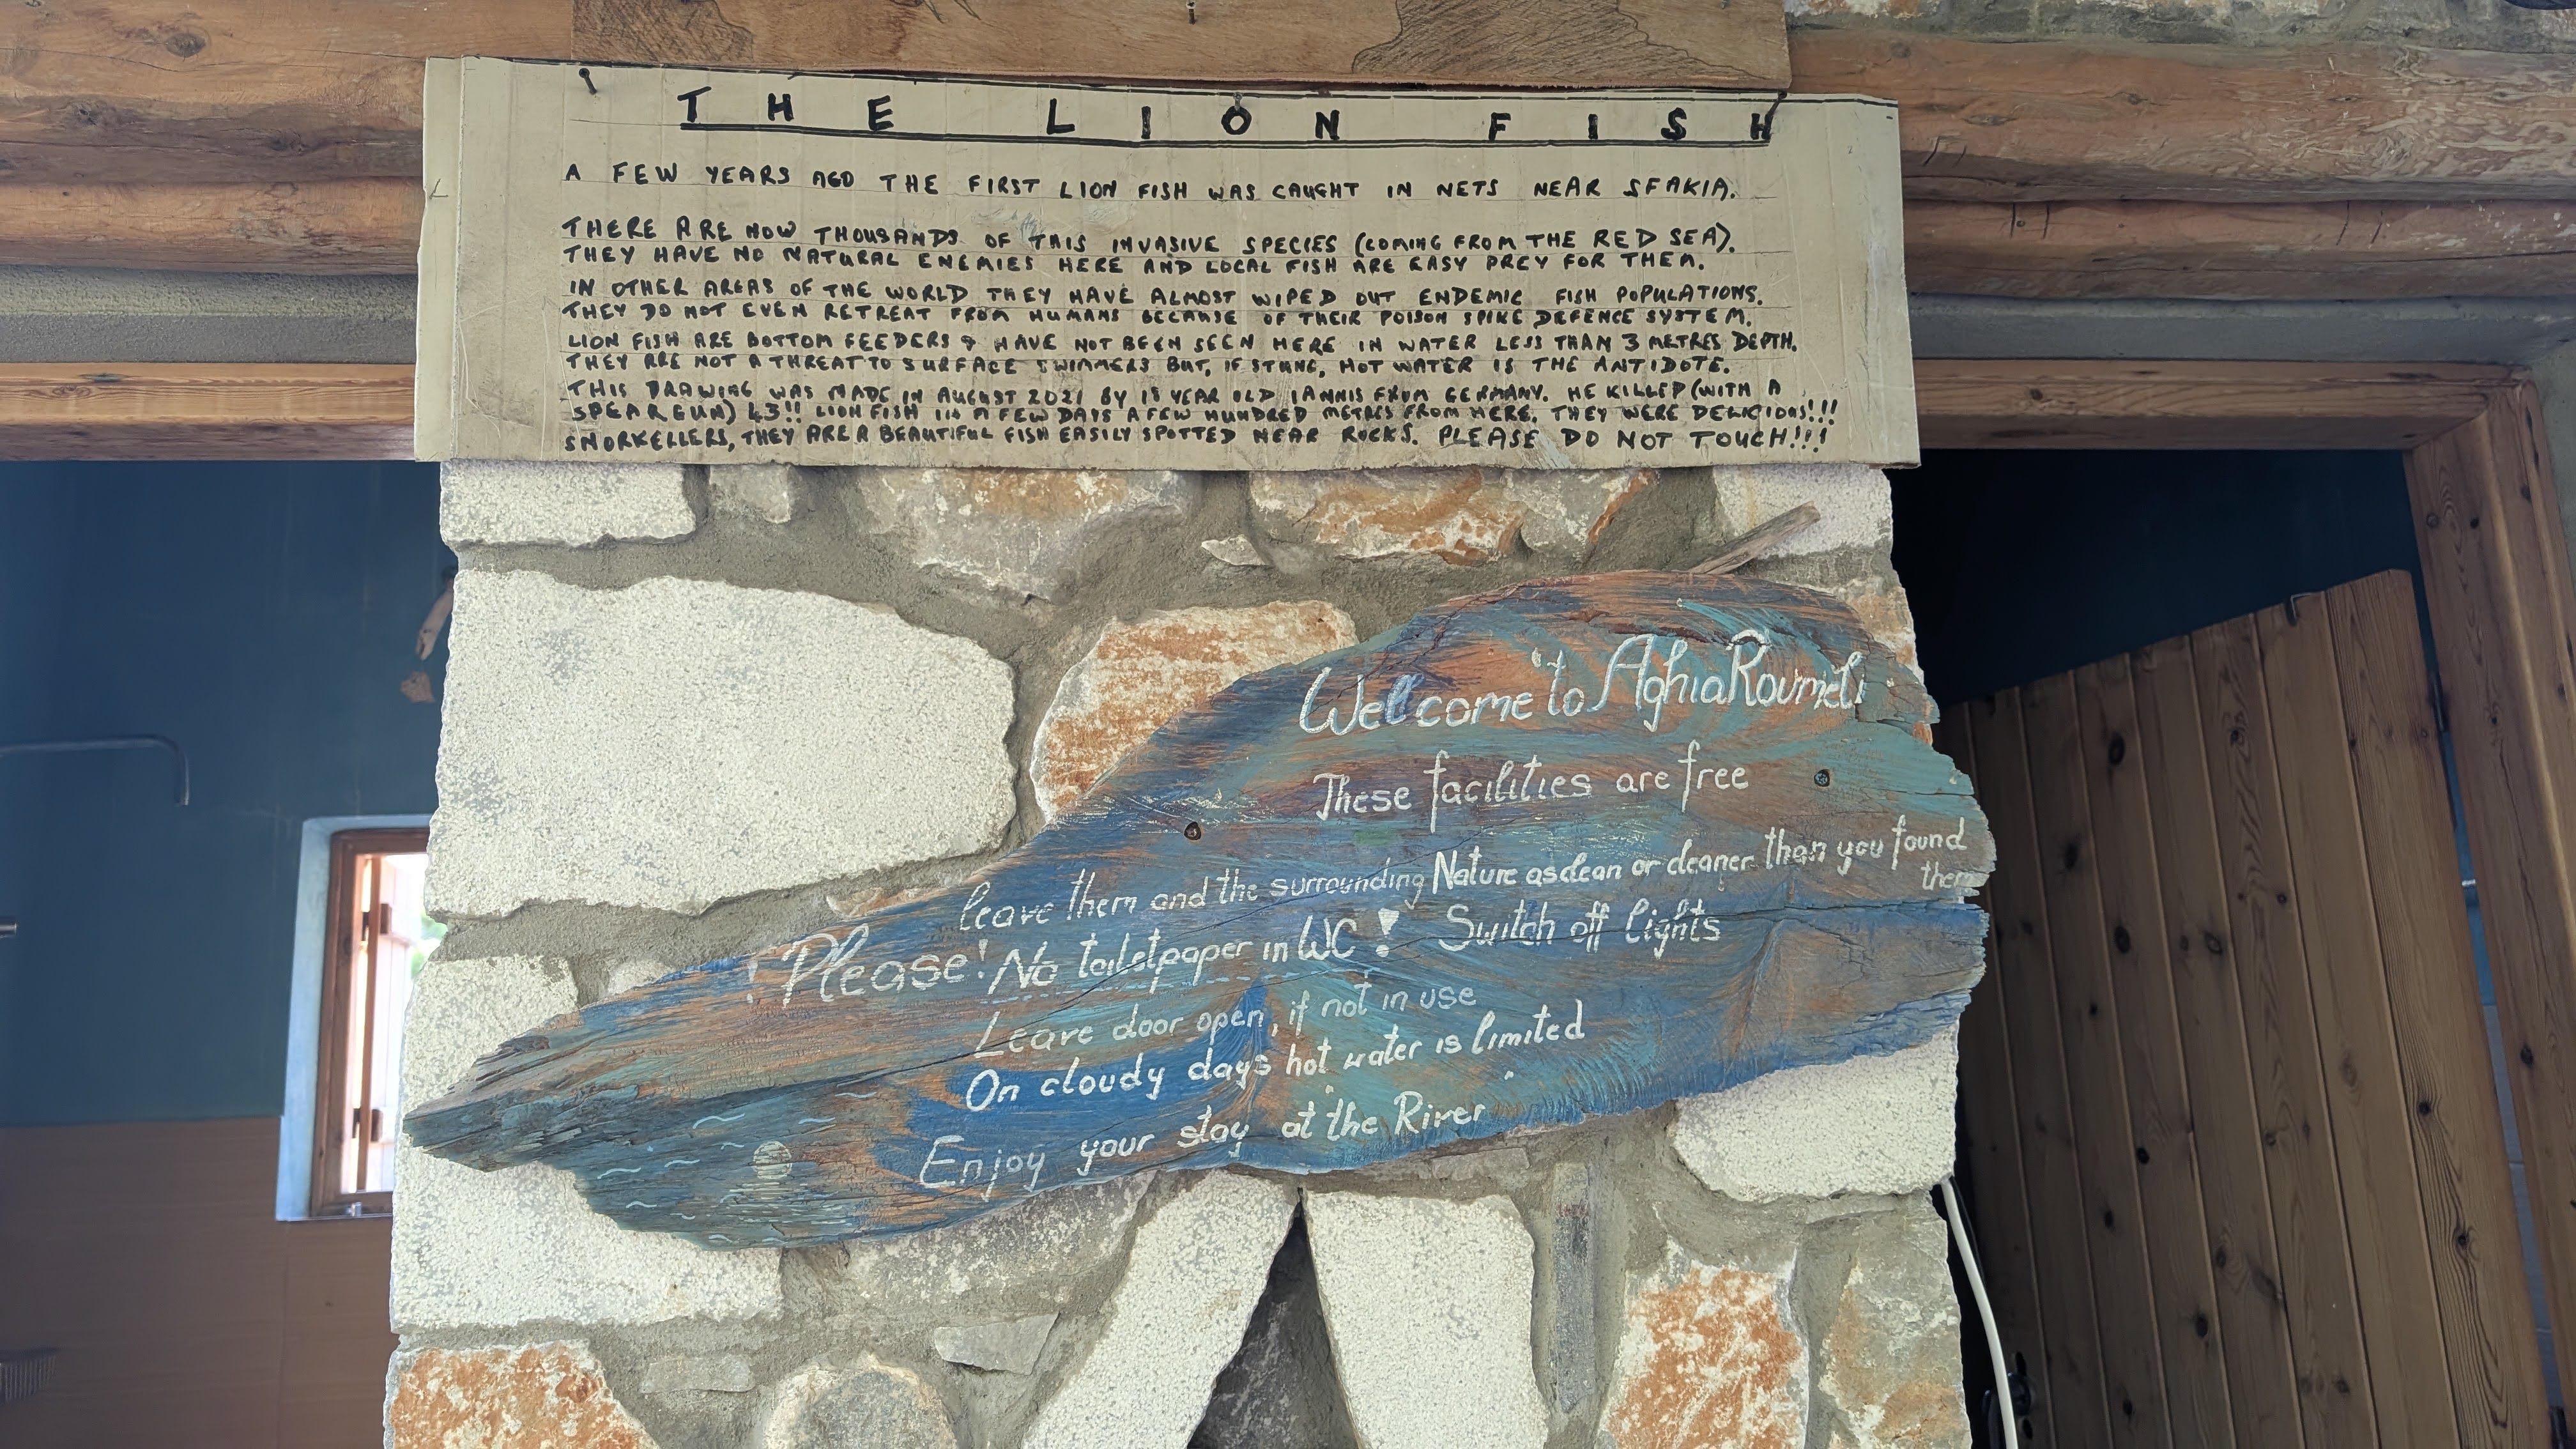 THE LION FISH
A FEW YEARS AGO THE FIRST LION FISH WAS CAUGHT IN NETS NEAR SFAKIA.
THERE ARE NOW THOUSANDS OF THIS INVASIVE SPECIES (COMING FROM THE RED SEA).
THEY HAVE NO NATURAL ENEMIES HERE AND LOCAL FISH ARE EASY PREY FOR THEM.
IN OTHER AREAS OF THE WORLD THEY HAVE ALMOST WIPED OUT ENDEMIC FISH POPULATIONS.
THEY DO NOT EVEN RETREAT FROM HUMANS BECAUSE OF THEIR POISON SPIKE DEFENCE SYSTEM.
LION FISH ARE BOTTOM FEEDERS & HAVE NOT BEEN SEEN HERE IN WATER LESS THAN 3 METRES DEPTH.
THEY ARE NOT A THREAT TO SURFACE SWIMMERS BUT, IF STUNG, HOT WATER IS THE ANTIDOTE.
THIS DRAWING WAS MADE IN AUGUST 2021 BY YEAR OLD IANNIS FROM GERMANY. HE KILLED (WITH A
SPEARGUN) 43!! LION FISH IN A FEW DAYS A FEW HUNDRED METRES FROM HERE. THEY WERE DELICIOUS!!!
SNORKELLERS, THEY ARE A BEAUTIFUL FISH EASILY SPOTTED NEAR ROCKS. PLEASE DO NOT TOUCH!!!
Welcome to Aghia Roumeli
These facilities are free
leave them and the surrounding Nature as clean or cleaner than you found
them
! Please! No toiletpaper in WC! Switch off lights
Leave door open, if not in use
On cloudy days hot water is limited
Enjoy your stay at the River